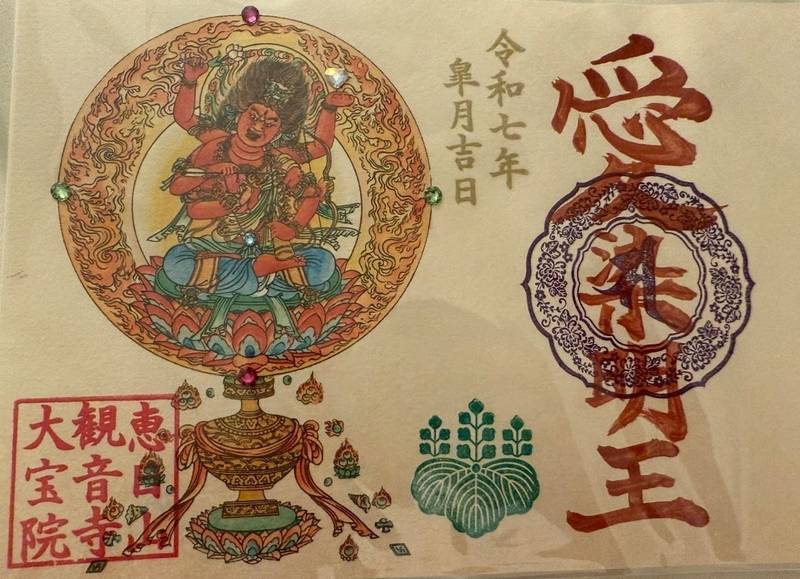 愛染明王
令和七年
皐月吉日
恵日山
観音寺
大宝院